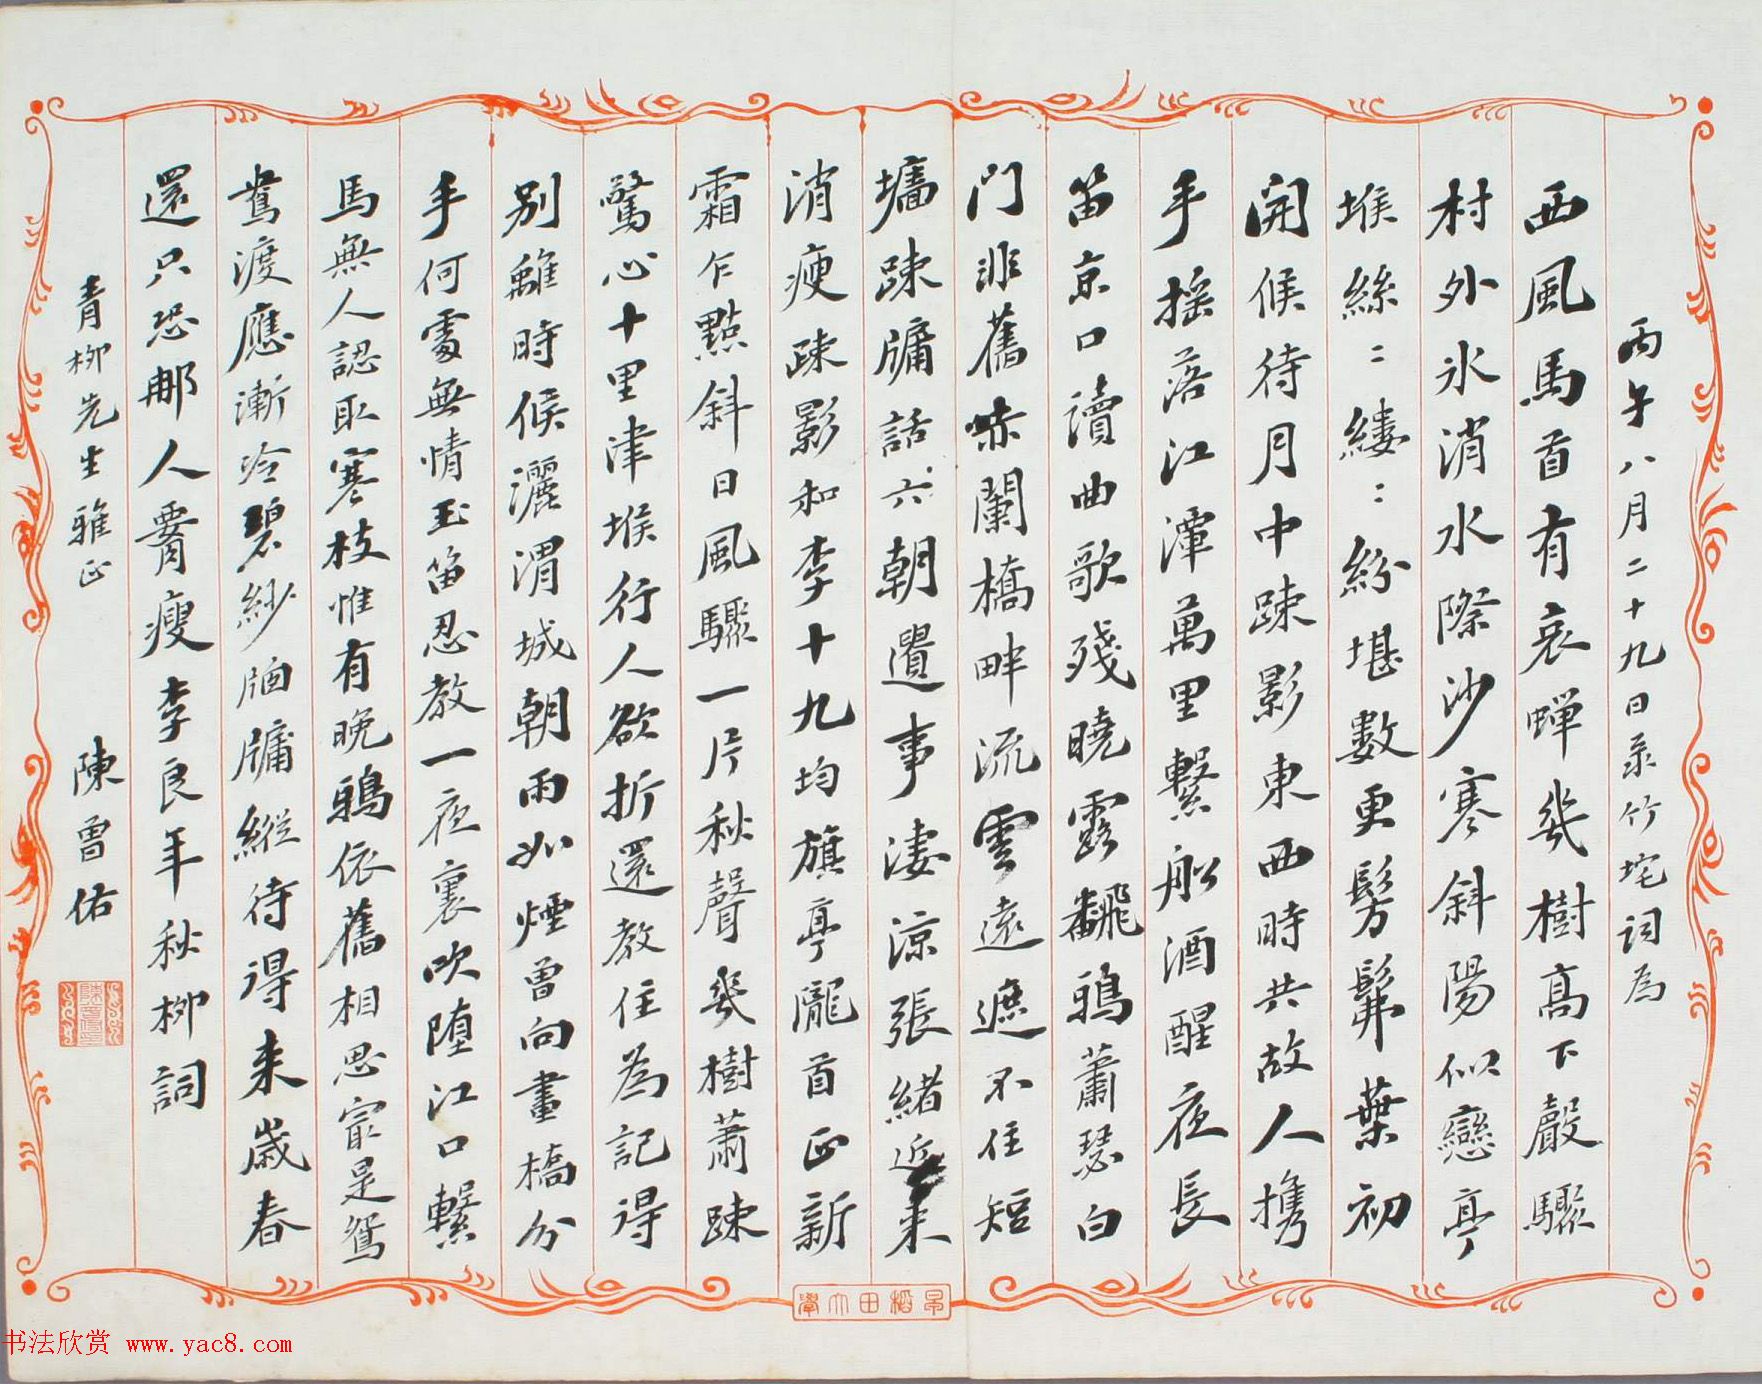 丙午八月二十九日录竹垞词为
西風馬首有哀蟬幾樹高下聲驟
村外氷消水際沙寒斜陽似戀亭
堠絲〻縷〻紛堪數更髣髴葉初
開候待月中疎影東西時共故人攜
手摇落江潭萬里繫船酒醒夜長
笛京口讀曲歌殘曉露翻鴉蕭瑟白
門非舊赤闌橋畔流雲遠遮不住短
墻疎牖話六朝遺事淒涼張緒近来
消瘦疎影和李十九均旗亭隴首正新
霜乍點斜日風驟一片秋聲幾樹蕭疎
驚心十里津堠行人欲折還教住為記得
別離時候灑渭城朝雨如煙曾向畫橋分
手何處無情玉笛忍教一夜裏吹堕江口繫
馬無人認取寒枝惟有晚鴉依舊相思㝡是鴛
鴦渡應漸冷碧紗牕牖縱待得来歲春
還只恐那人霄瘦李良年秋柳詞
青柳先生雅正
陳曾佑
早稻田大學
书法欣赏 www.yac8.com